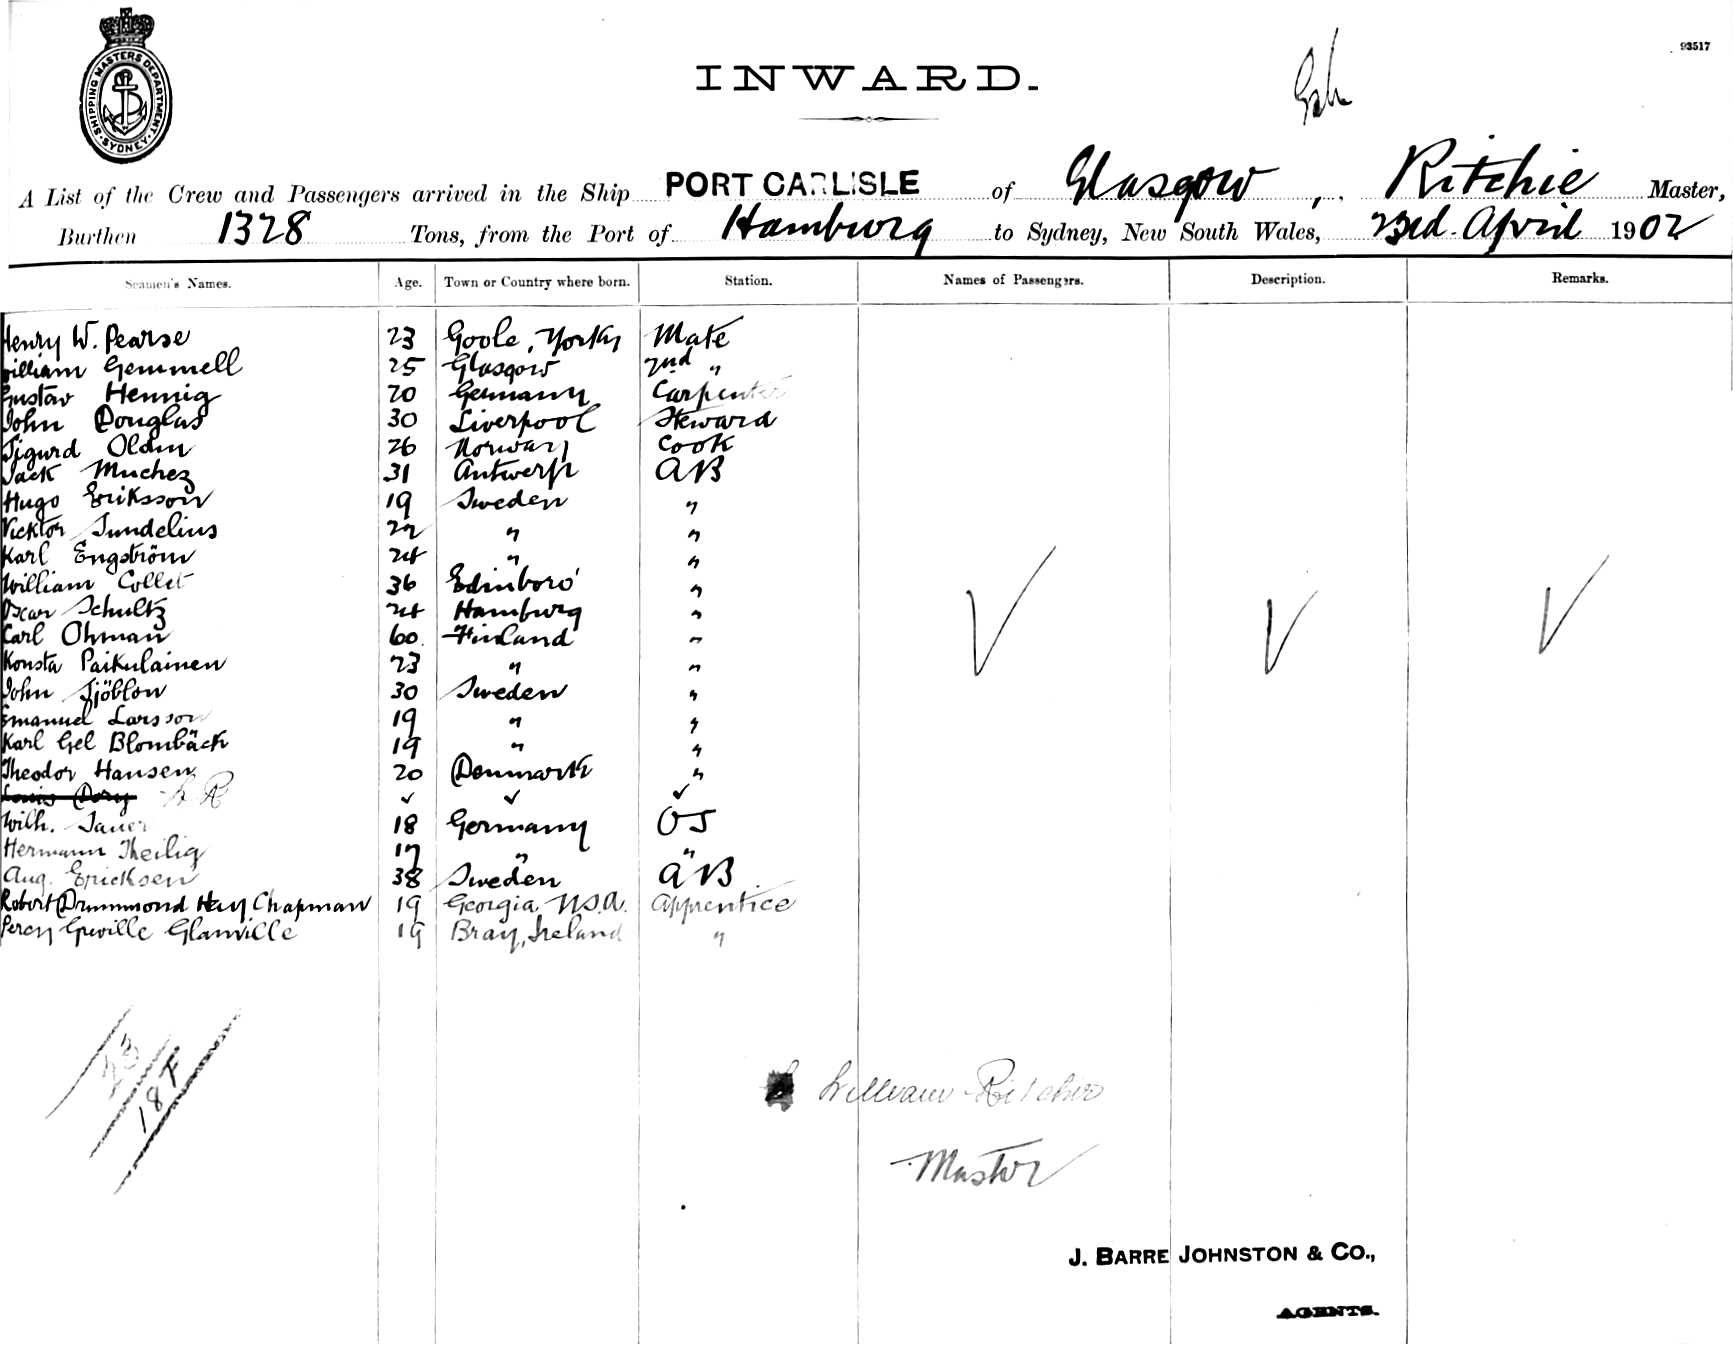 93517
SHIPPING MASTERS DEPARTMENT. SYDNEY
INWARD.
A List of the Crew and Passengers arrived in the Ship PORT CARLISLE of Glasgow, Ritchie Master,
Burthen 1328 Tons, from the Port of Hamburg to Sydney, New South Wales, 23rd April 1902
Seamen's Names. Age. Town or Country where born. Station. Names of Passengers. Description. Remarks.
Henry W. Pearse 23 Goole, Yorks Mate
William Gemmell 25 Glasgow 2nd "
Gustav Hennig 20 Germany Carpenter
John Douglas 30 Liverpool Steward
Sigurd Olsen 26 Norway Cook
Jack Muchez 31 Antwerp AB
Hugo Eriksson 19 Sweden "
Vicktor Sundelius 22 " "
Karl Engström 24 " "
William Collet 36 Edinboro' "
Oscar Schultz 24 Hamburg "
Carl Ohman 60 Finland "
Konsta Paikulainen 23 " "
John Sjöblom 30 Sweden "
Emanuel Larsson 19 " "
Karl Gel Blombäck 19 " "
Theodor Hansen 20 Denmark "
Louis Dory
Wilh. 18 Germany OS
Hermann Theilig 17 " "
Aug. Ericksen 38 Sweden AB
Robert Drummond Hay Chapman 19 Georgia U.S.A. Apprentice
Percy Greville Glanville 19 Bray, Ireland "
23
18 F
William Ritchie
Master
J. BARRE JOHNSTON & CO.,
AGENTS.